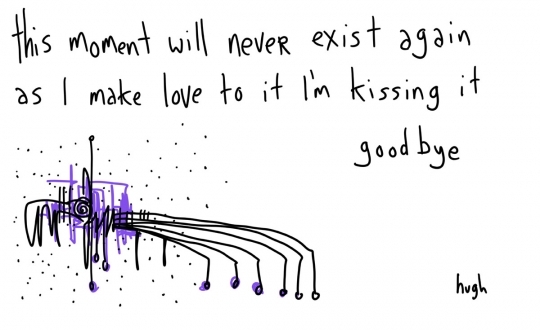 this moment will never exist again
as I make love to it I'm kissing it
goodbye
hugh